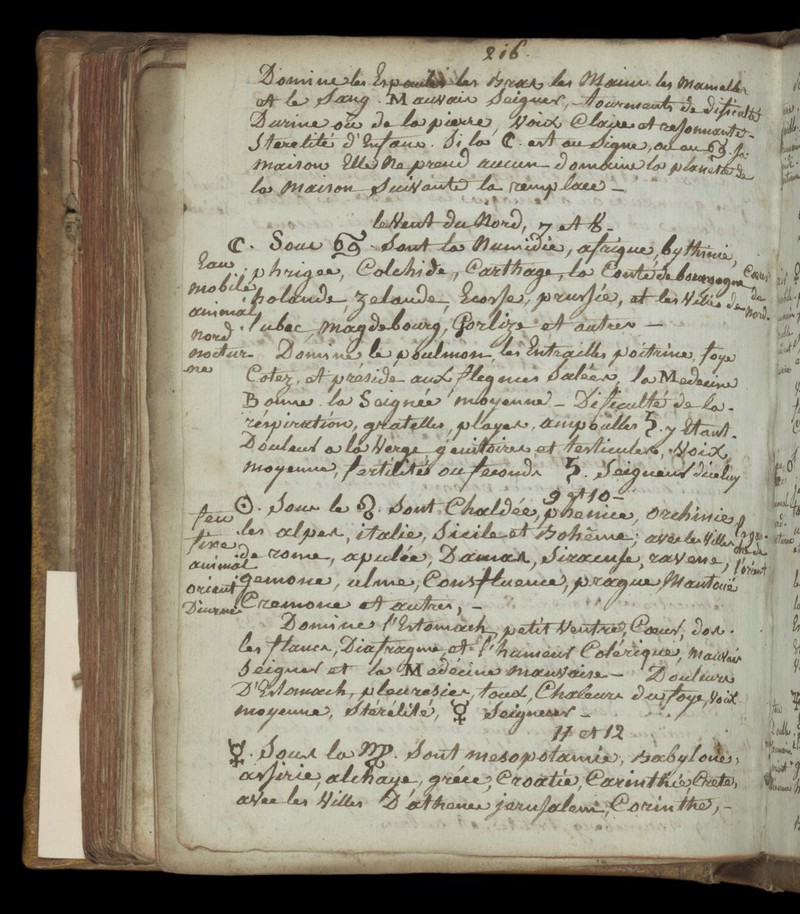 216.
Domine les Espaules les Bras les Mains les Mamelles
et le Sang. Mauvais Seigner, tourments de dificulté
Durine ou de la pierre, Voix Claire et resonnante-
Sterelité d'Enfans. Si la ☾. est au Signe, ou au ♋. sa
maison Elle Ne prand aucun domaine la planette de
la Maison Suivante la remplace -
le Vent du Nord, 7 et 8-
☾. Sous ♋ Sont la Numidie, afrique, bythinie,
Eau phrigee, Colchide, Carthage, la Conté de bourgogne
mobile holande, Zelande, Ecosse, prussie, et les Villes de
du Nord-
animal Lubec, magdebourg, Gorlize et autres -
Nord
noctur- Domine le poulmon, les Entrailles poitrine, foye
ne Cotez, et préside aux flegmes Salées, la Medecine
Bonne la Seignée moyenne - Dificulté de la-
réspiration, gratelles, playes, ampoulles ♄. y Etant.
Douleur a la Verge génitoires et testicules, Voix
moyenne, fertilité ou feconde ♄. Seigneur diceluy
9 et 10-
☉. Sous le ♌. Sont Chaldée, phenice, orchinie,
feu les alpes, italie, Sicile et Bohême; avec les Villes
fixe de rome, apulée, Damas, Siracuse, ravene,
l'orient
animal
orient gemone, ulme, Consfluence, prague, Mantouë
Diurne Cremone et autres, -
Domine l'Estomach, petit Ventre, Cœur, dos.
les flancs, Diafragme, et l'humeur Colérique, Mauvais
Seigner et la Medécine mauvaise - Douleurs
D'Estomach, pleuresies, toux, Chaleurs du foye, Voix
moyenne, Stérélité, ☿ Seigneur -
11 et 12
☿. Sous la ♍. Sont mesopotamie, Babylone,
assirie, alchaye, gréce, Croatie, Carinthie, Crete,
avec les Villes D'athenes jerusalem, Corinthe, -